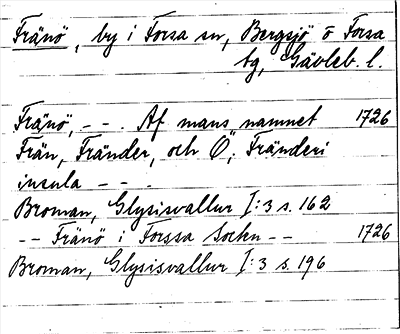 Fränö, by i Forsa sn, Bergsjö o Forsa
tg, Gävleb. l.
Fränö, - - . Af mans namnet 1726
Frän, Fränder, och Ö, Fränderi
insula - - .
Broman, Glysisvallur I:3 s. 162
- - Fränö i Forssa Sockn - - 1726
Broman, Glysisvallur I:3 s. 196